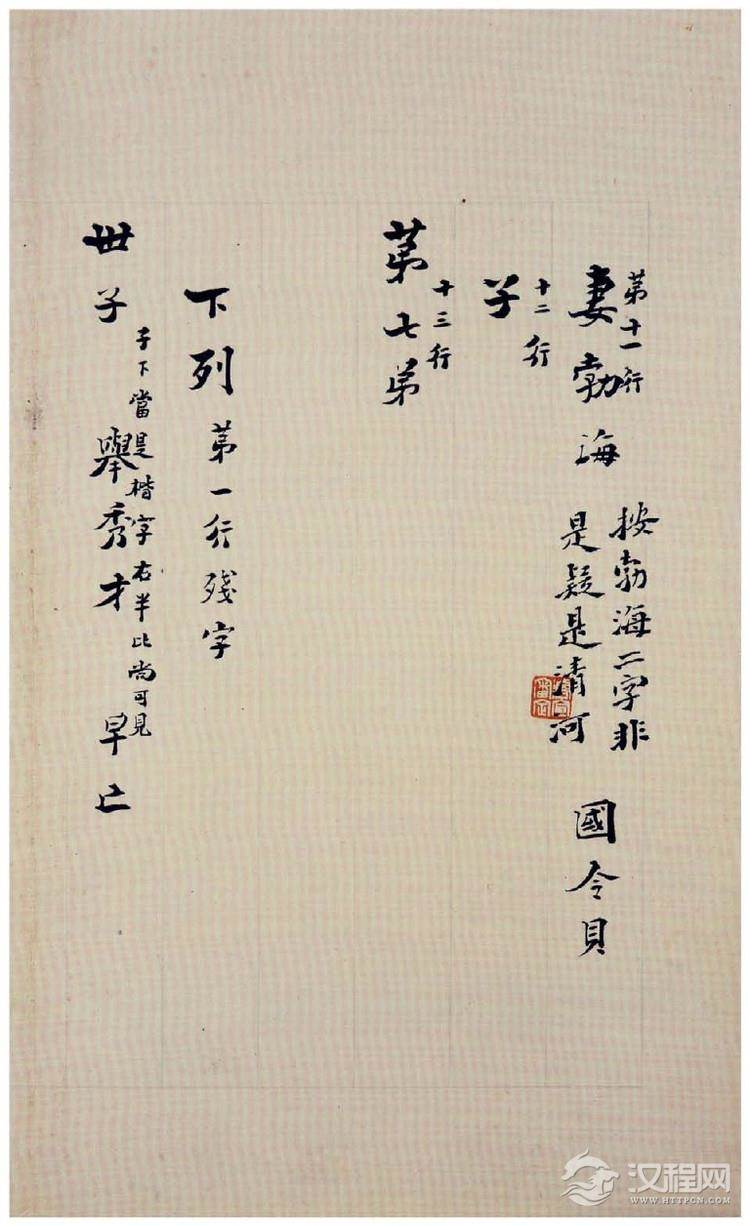 第十一行
妻勃海
按勃海二字非
是疑是清河
國令貝
十二行
子
十三行
第七弟
下列第一行殘字
世子
子下當是楷字右半比尚可見
舉秀才
早亡
汉程网
WWW.HTTPCN.COM